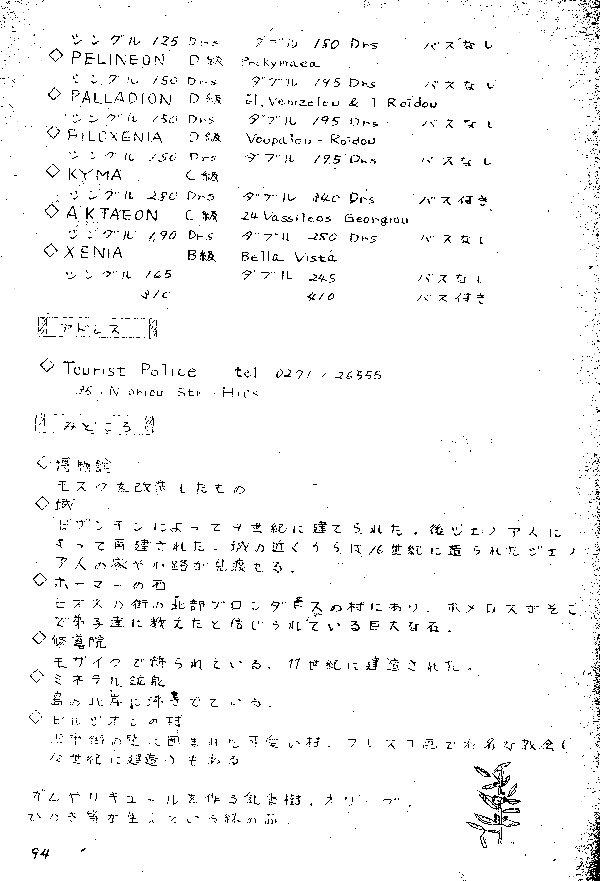 シングル 125 Drs ダブル 150 Drs バスなし
◇ PELINEON D級 Prokymaea
シングル 150 Drs ダブル 195 Drs バスなし
◇ PALLADION D級 El. Venizelou & 1 Roïdou
シングル 150 Drs ダブル 195 Drs バスなし
◇ FILOXENIA D級 Voupalou - Roïdou
シングル 150 Drs ダブル 195 Drs バスなし
◇ KYMA C級
シングル 280 Drs ダブル 340 Drs バス付き
◇ AKTAEON C級 24 Vassileos Georgiou
シングル 190 Drs ダブル 250 Drs バスなし
◇ XENIA B級 Bella Vista
シングル 165 ダブル 245 バスなし
310 410 バス付き
アドレス
◇ Tourist Police tel 0271 / 26555
35, Str.
みどころ
◇ 博物館
モスクを改装したもの
◇ 城
ビザンチンによって 世紀に建てられた。後ジェノア人に
よって再建された。城の近く 16世紀に造られたジェノ
ア人の家や小路が見渡せる。
◇ ホーマーの石
ヒオスの街の北部ブロンダドスの村にあり、ホメロスがそこ
で弟子達に教えたと信じられている巨大な石。
◇ 修道院
モザイクで飾られている。11世紀に建造された。
◇ ミネラル鉱泉
島の北岸に沸きでている。
◇ の村
壁に囲まれた可愛い村。フレスコ画で有名な教会(
世紀に建造)もある
ガムやリキュールを作る乳香樹、オリーブ、
ひのき等が生 という緑の島。
94